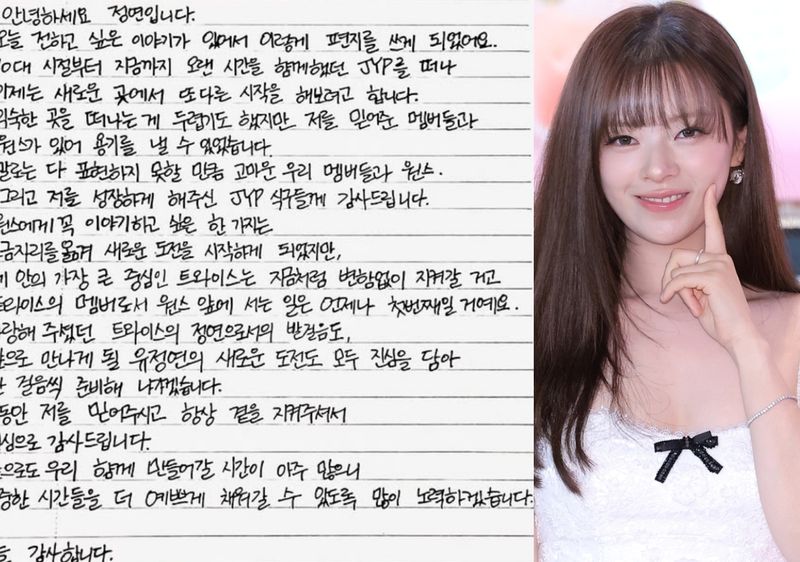 안녕하세요 정연입니다.
오늘 전하고 싶은 이야기가 있어서 이렇게 편지를 쓰게 되었어요.
10대 시절부터 지금까지 오랜 시간을 함께했던 JYP를 떠나
이제는 새로운 곳에서 또 다른 시작을 해보려고 합니다.
익숙한 곳을 떠나는 게 두렵기도 했지만 저를 믿어준 멤버들과
원스가 있어 용기를 낼 수 있었습니다.
말로는 다 표현하지 못할 만큼 고마운 우리 멤버들과 원스.
그리고 저를 성장하게 해주신 JYP 식구들께 감사드립니다.
원스에게 꼭 이야기하고 싶은 한 가지는
금자리를 옮겨 새로운 도전을 시작하게 되었지만,
제 안의 가장 큰 중심인 트와이스는 지금처럼 변함없이 지켜갈 거고
트와이스의 멤버로서 원스 앞에 서는 일은 언제나 첫번째일 거예요.
사랑해 주셨던 트와이스의 정연으로서의 발걸음도,
앞으로 만나게 될 유정연의 새로운 도전도 모두 진심을 담아
한 걸음씩 준비해 나가겠습니다.
동안 저를 믿어주시고 항상 곁을 지켜주셔서
진심으로 감사드립니다.
앞으로도 우리 함께 만들어갈 시간이 아주 많으니
소중한 시간들을 더 예쁘게 채워갈 수 있도록 많이 노력하겠습니다.
감사합니다.